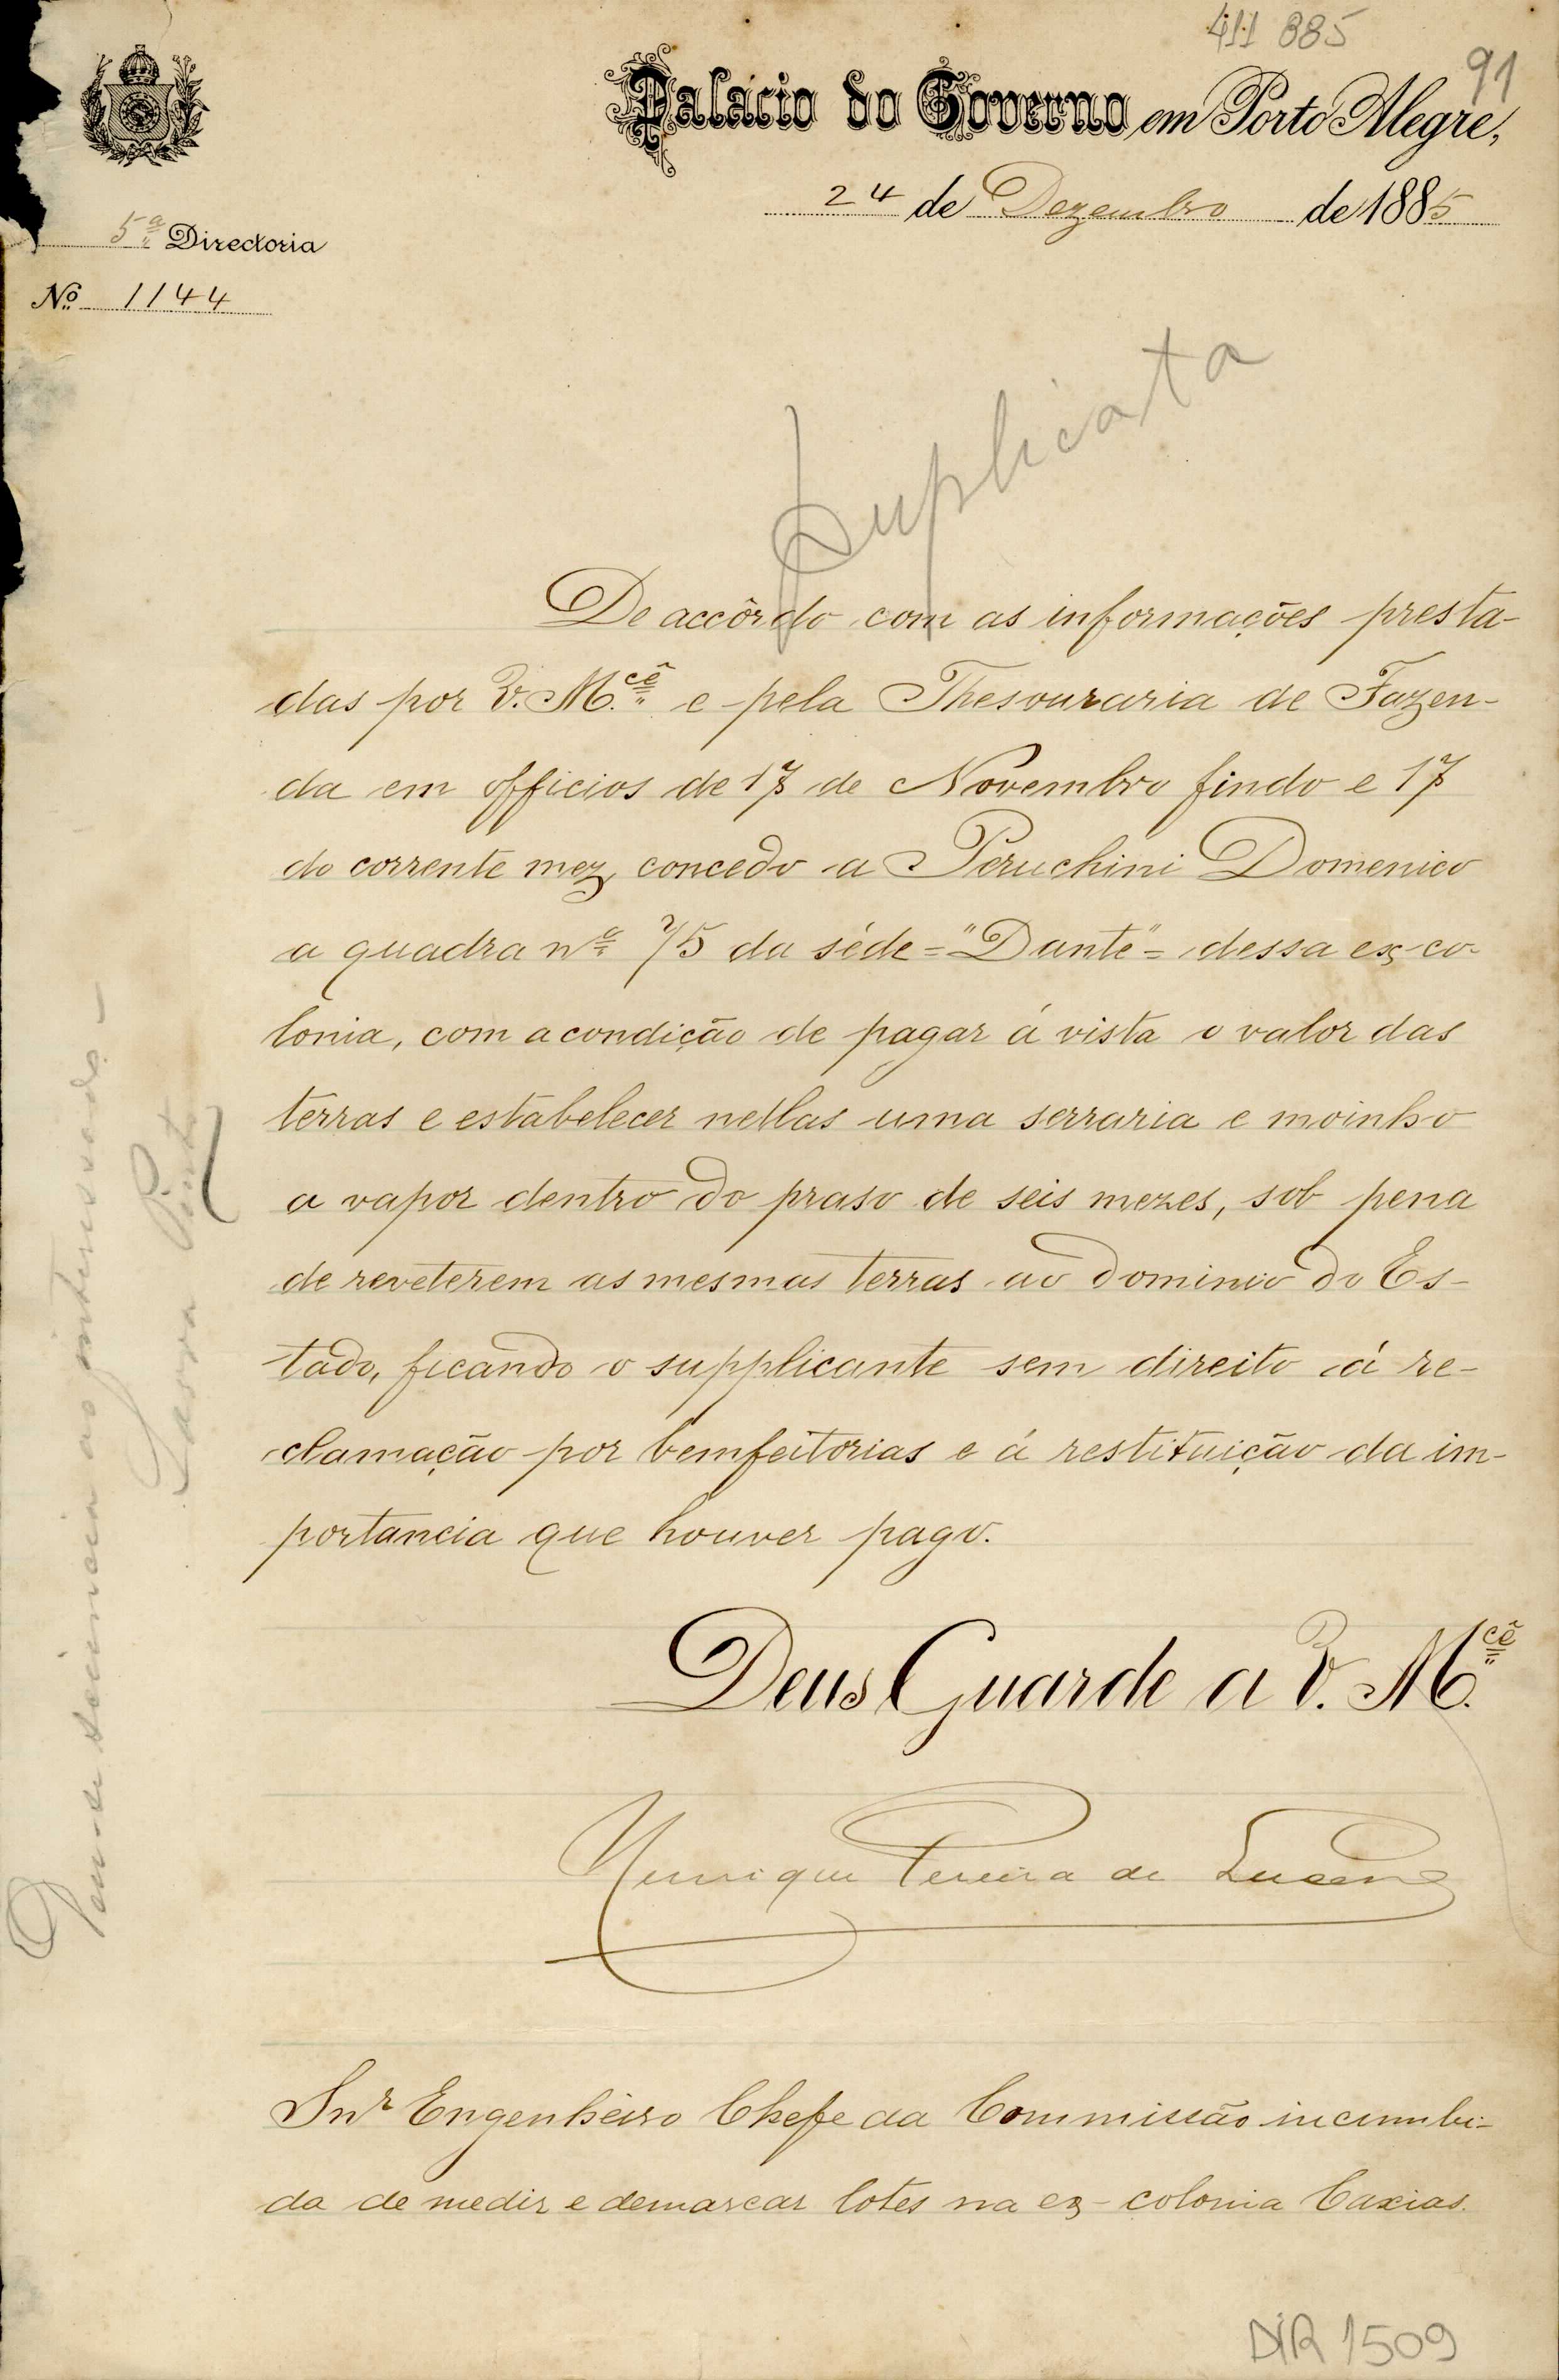 411 885
91
Palacio do Governo em Porto Alegre,
24 de Dezembro de 1885
5ª Directoria
Nº 1144
Duplicata
De accôrdo com as informações presta-
das por V. M.cê e pela Thesouraria de Fazen-
da em officios de 17 de Novembro findo e 17
do corrente mez, concedo a Peruchini Domenico
a quadra nº 75 da séde="Dante"= dessa ex-co-
lonia, com a condição de pagar á vista o valor das
terras e estabelecer nellas uma serraria e moinho
a vapor dentro do praso de seis mezes, sob pena
de reveterem as mesmas terras ao dominio do Es-
tado, ficando o supplicante sem direito á re-
clamação por bemfeitorias e á restituição da im-
portancia que houver pago.
Deus Guarde a V. M.cê
Henrique Pereira de Lucena
Snr Engenheiro Chefe da Commissão incumbi-
da de medir e demarcar lotes na ex-colonia Caxias.
ao interessado -
Pinto
DIR 1509